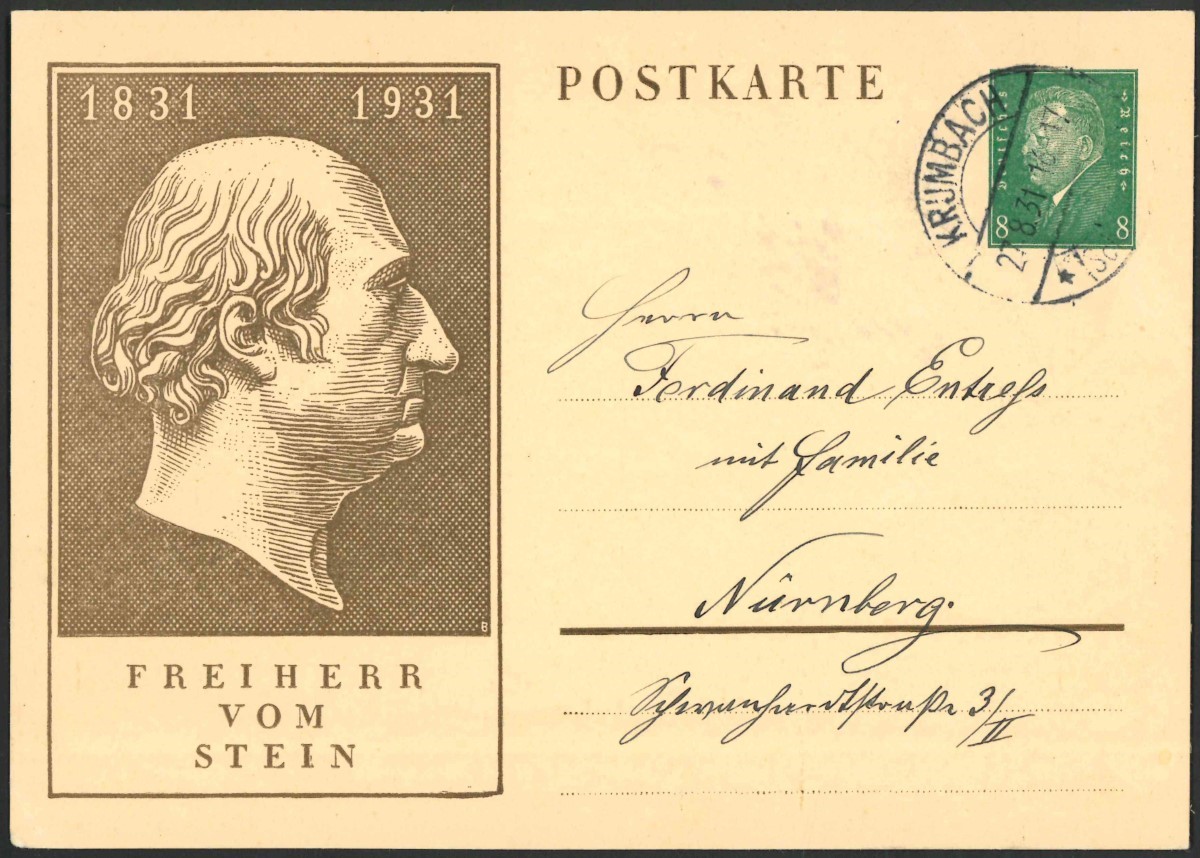 1831 1931
FREIHERR
VOM
STEIN
B
POSTKARTE
Deutsches Reich
8 8
KRUMBACH
27.8.31. 16-17.
Herrn
Ferdinand Entreß
mit Familie
Nürnberg.
Schwanhardtstraße 3/II